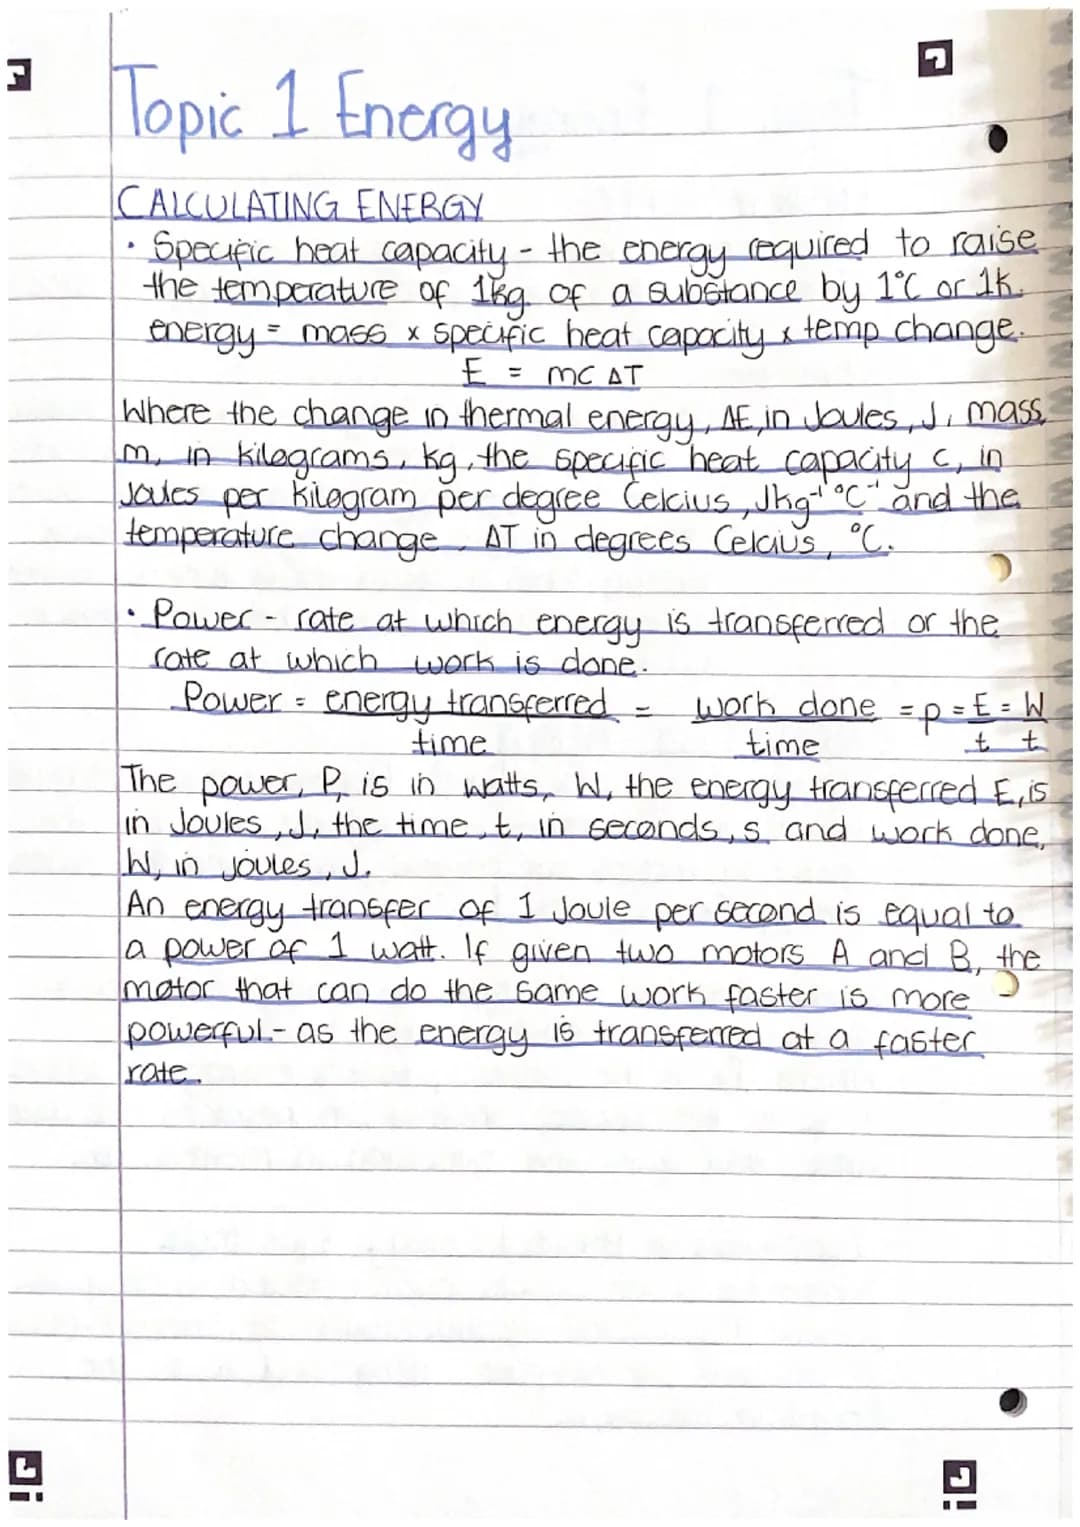 Topic 1 Energy
CALCULATING ENERGY
• Specific heat capacity - the energy required to raise
the temperature of 1kg of a substance by 1°C or 1K.
energy = mass x specific heat capacity x temp change.
E = mc ΔT
Where the change in thermal energy, ΔE, in Joules, J, mass,
m, in kilograms, kg, the specific heat capacity c, in
Joules per kilogram per degree Celcius, Jkg⁻¹ °C⁻¹ and the
temperature change, ΔT in degrees Celcius, °C.
• Power - rate at which energy is transferred or the
rate at which work is done.
Power = energy transferred = work done = p = E = W
time time t t
The power, P, is in watts, W, the energy transferred E, is
in Joules, J, the time, t, in seconds, s and work done,
W, in joules, J.
An energy transfer of 1 Joule per second is equal to
a power of 1 watt. If given two motors A and B, the
motor that can do the same work faster is more
powerful - as the energy is transferred at a faster
rate.